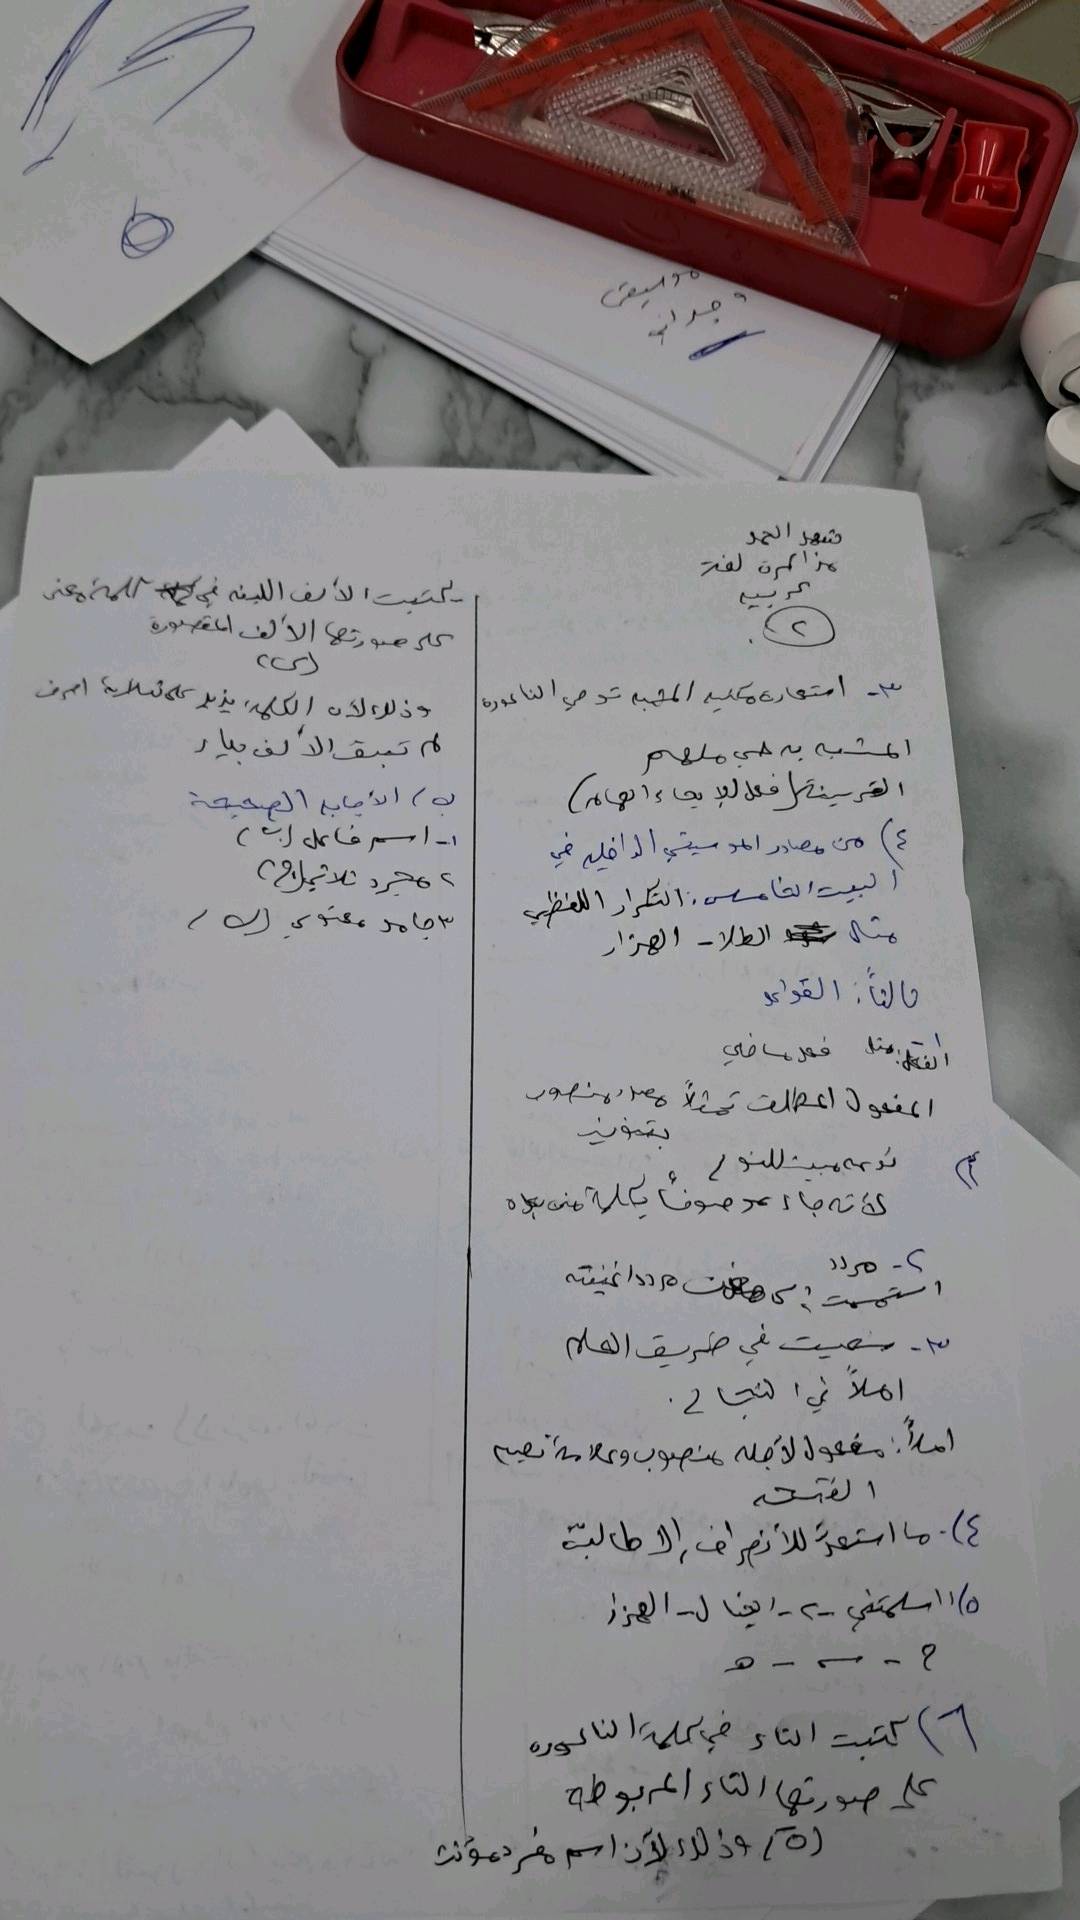 موسيقى
وجداني
شهد الحمد
مذاكرة لغة
عربيه
٢
٣- استعارة مكنيه المشبه توحي الناعورة
المشبه به حي ملهم
القرينة (فعل الإيحاء الهام)
٤) من مصادر الموسيقى الداخليه في
البيت الخامس: التكرار اللفظي
مثال الطلا - الهزار
ثالثاً: القواعد
فعل ماضي
المفعول المطلق تمثلاً مصدر منصوب
بتنوين
٢) نوعه مبين للنوع
لأنه جاء موصوفاً بكلمة من بعده
٢- مردد
استمعت إلى مردداً اغنيته
٣- سعيت في طريق العلم
املاً في النجاح.
املاً: مفعول لأجله منصوب وعلامة نصبه
الفتحه
٤)- ما استعدَّ للأنصراف إلا طالبٌ
٥) ١ استمتعي -٢- الهزار
٦) كتبت التاء في كلمة الناعوره
على صورتها التاء المربوطة
(ة) وذلك لأن اسم مفرد مؤنث
- كتبت الألف اللينه في كلمة مغنى
على صورتها الألف المقصورة
(ى)
وذلك لأن الكلمة يزيد على ثلاثة احرف
لم تسبق الألف بياء
ب) الأجابه الصحيحة
١- اسم فاعل (ب)
٢ مجرد ثلاثي (ج)
٣ جامد معنوي (ب)